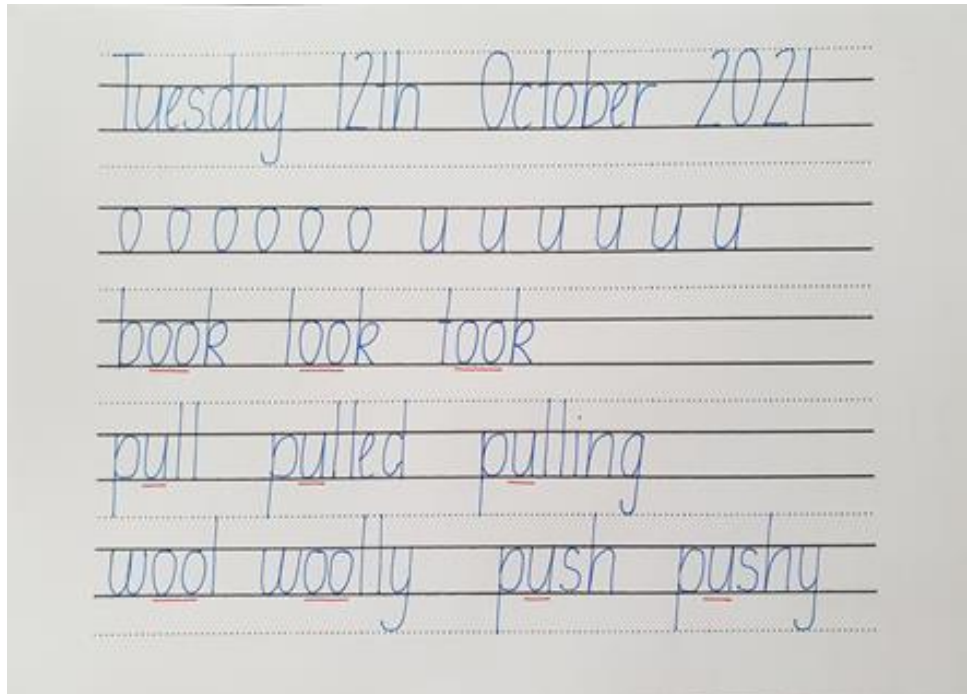 Tuesday 12th October 2021
o o o o o o u u u u u u
book look took
pull pulled pulling
wool woolly push pushy